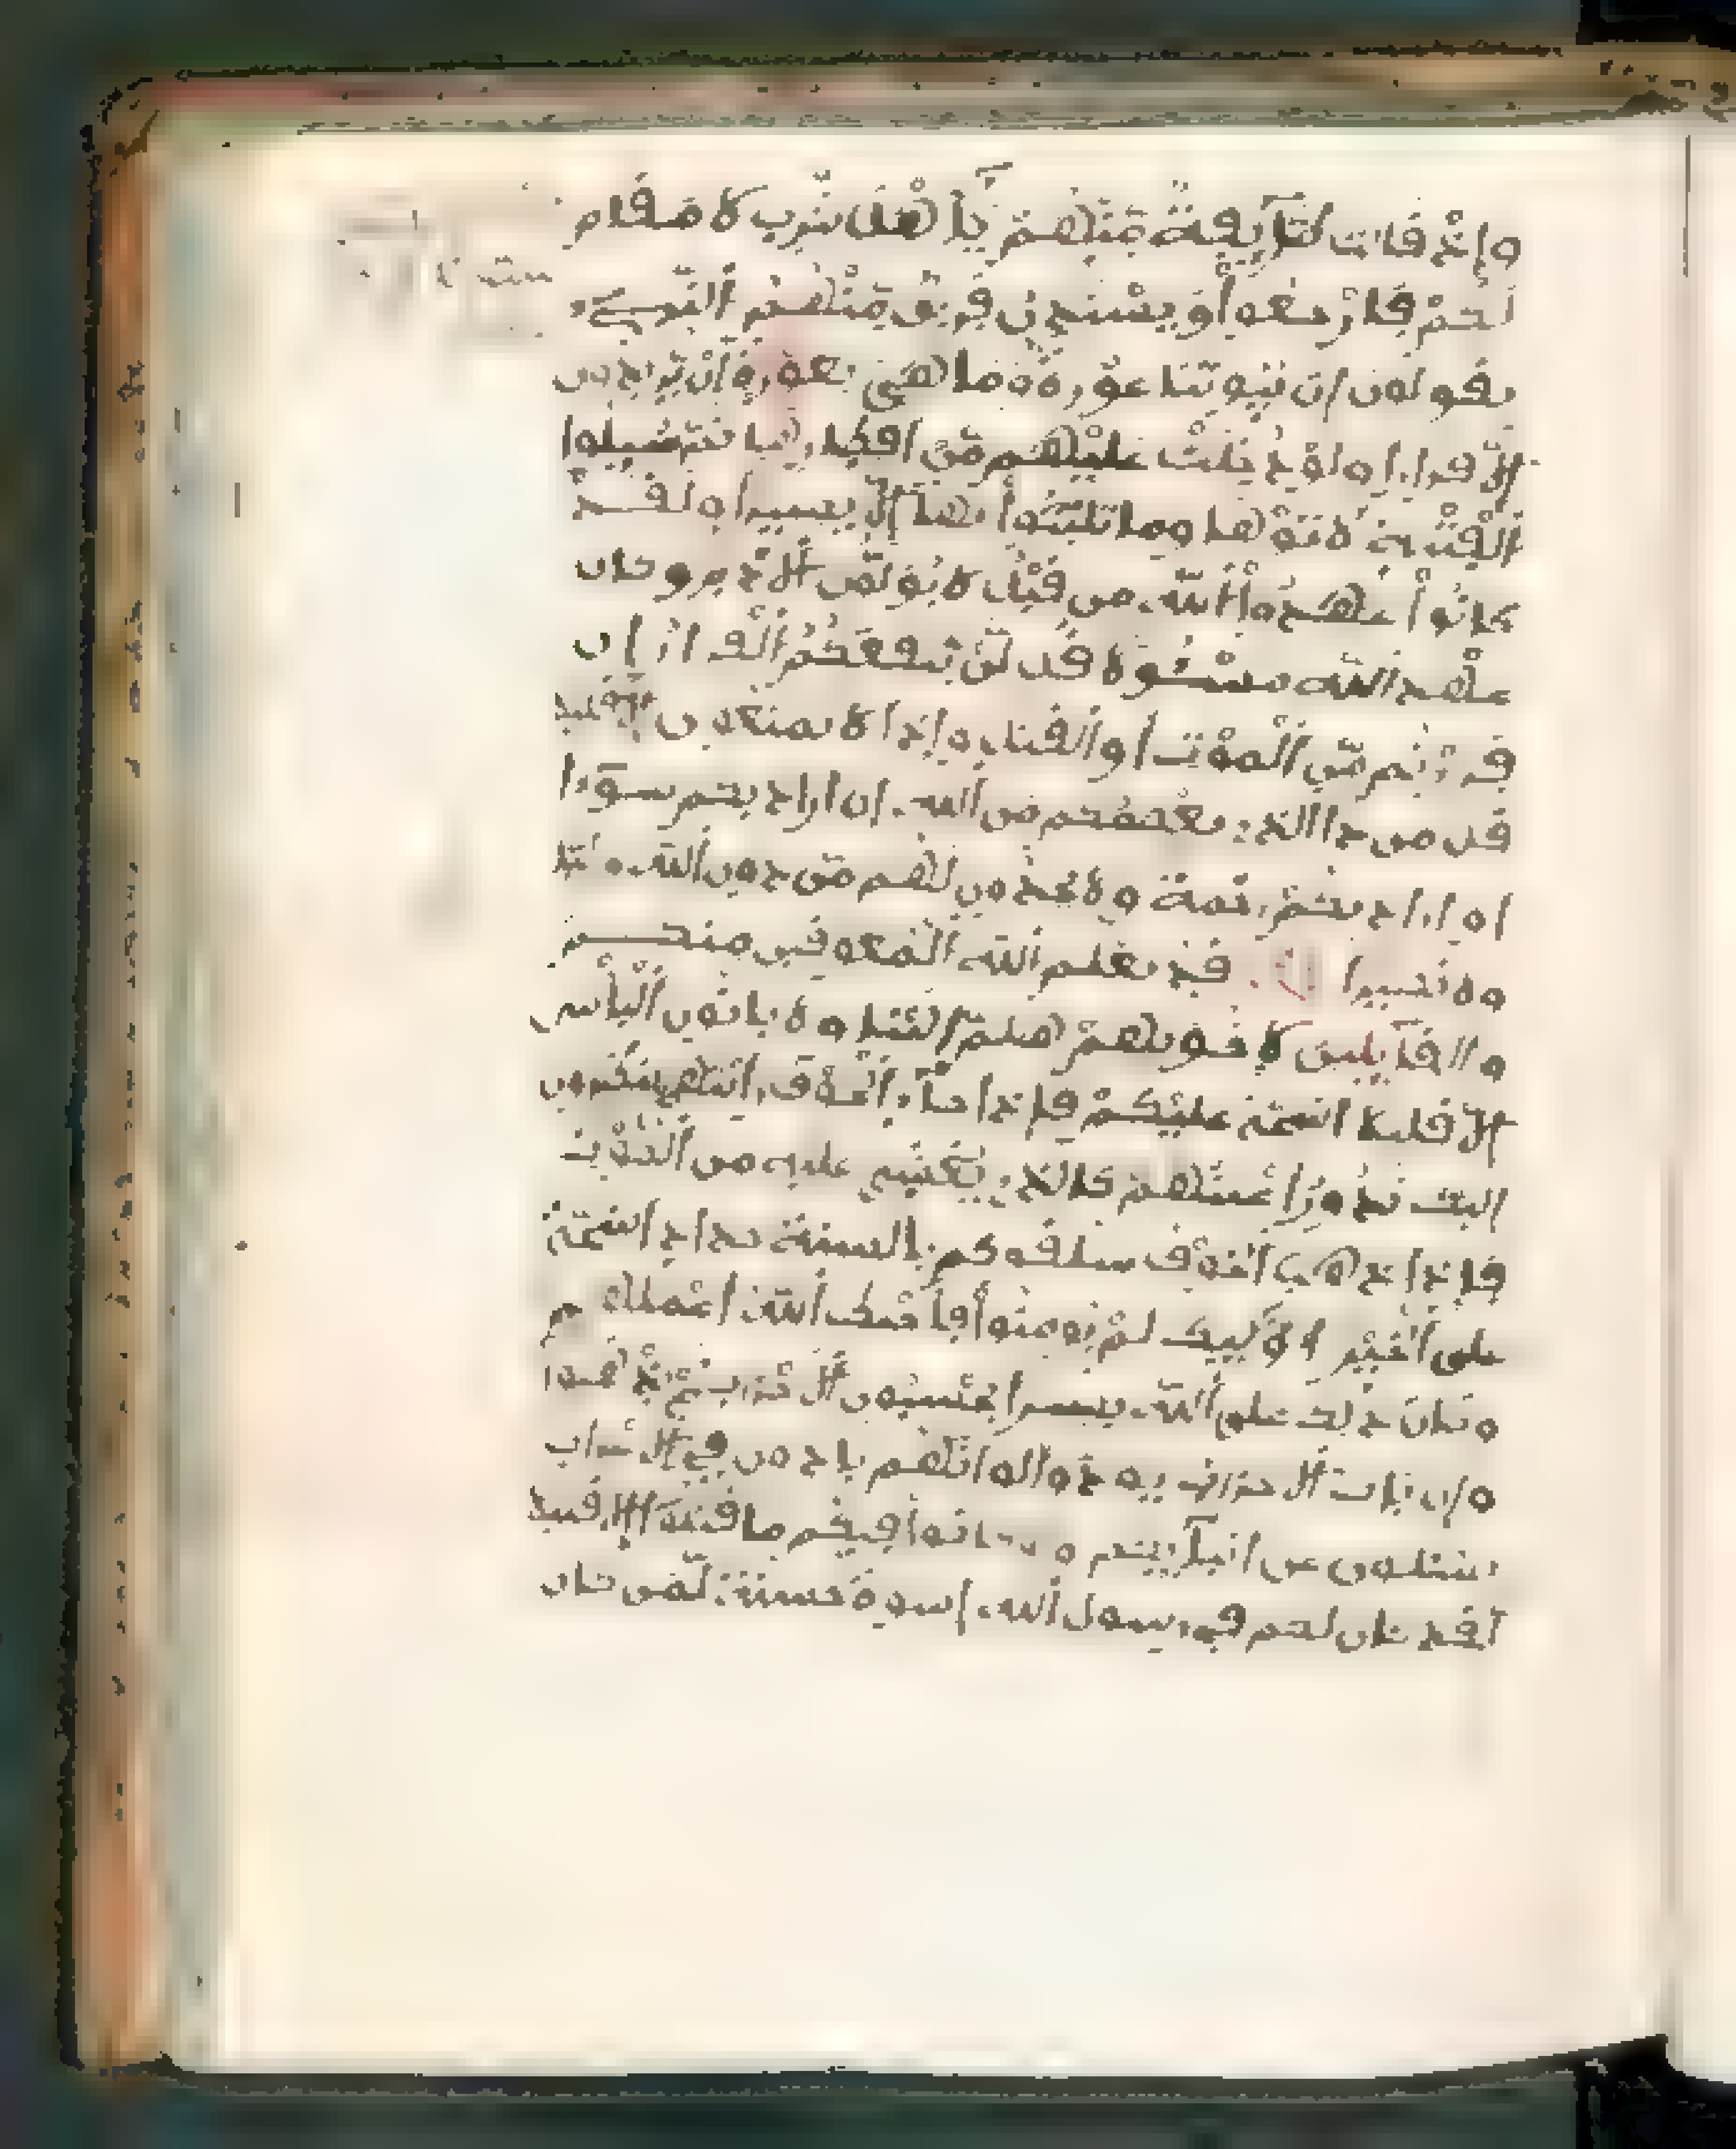 وإذ قالت طآيفة منهم يأهل يثرب لا مقام
لكم فارجعوا ويستـٔذن فريق منهم النبيء
يقولون إن بيوتنا عورة وما هي بعورة إن يريدون
إلا فرارا ولو دخلت عليهم من اقطارها ثم سيلوا
الفتنة لأتوها وما تلبثوا بها إلا يسيرا ولقد
كانوا عهدوا الله من قبل لا يولون الادبر وكان
عهد الله مسـٔولا قل لن ينفعكم الفرار إن
فررتم من الموت أو القتل وإذا لا تمتعون إلا قليلا
قل من ذا الذي يعصمكم من الله إن اراد بكم سوءا
او اراد بكم رحمة ولا يجدون لهم من دون الله وليا
ولا نصيرا قد يعلم الله المعوقين منكم
والقآيلين لإخونهم هلم إلينا ولا ياتون الباس
إلا قليلا اشحة عليكم فإذا جآء الخوف رأيتهم ينظرون
إليك تدور أعينهم كالذي يغشى عليه من الموت
فإذا ذهب الخوف سلقوكم بألسنة حداد اشحة
على الخير أولـٰيك لم يومنوا فأحبط الله أعملهم
وكان ذلك على الله يسيرا يحسبون الاحزاب لم يذهبوا
وإن يات الاحزاب يودوا لو انهم بادون في الاعراب
يسـٔلون عن انبآيكم ولو كانوا فيكم ما قتلوا إلا قليلا
لقد كان لكم في رسول الله إسوة حسنة لمن كان